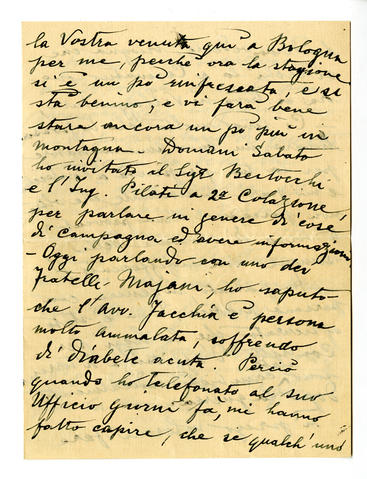 la Vostra venuta qui a Bologna
per me, perchè ora la stagione
si è un pò rinfrescata, e si
sta benino, e vi farà bene
stare ancora un pò più in
montagna. Domani Sabato
ho invitato il Sigr Bertocchi
e l'Ing. Pilati a 2a Colazione,
per parlare in genere di cose
di campagna ed avere informazioni
- Oggi parlando con uno dei
fratelli Majani, ho saputo
che l'Avv. Jacchia è persona
molto ammalata, soffrendo
di diabete acuta. Perciò
quando ho telefonato al suo
Ufficio giorni fà, mi hanno
fatto capire, che se qualch'uno